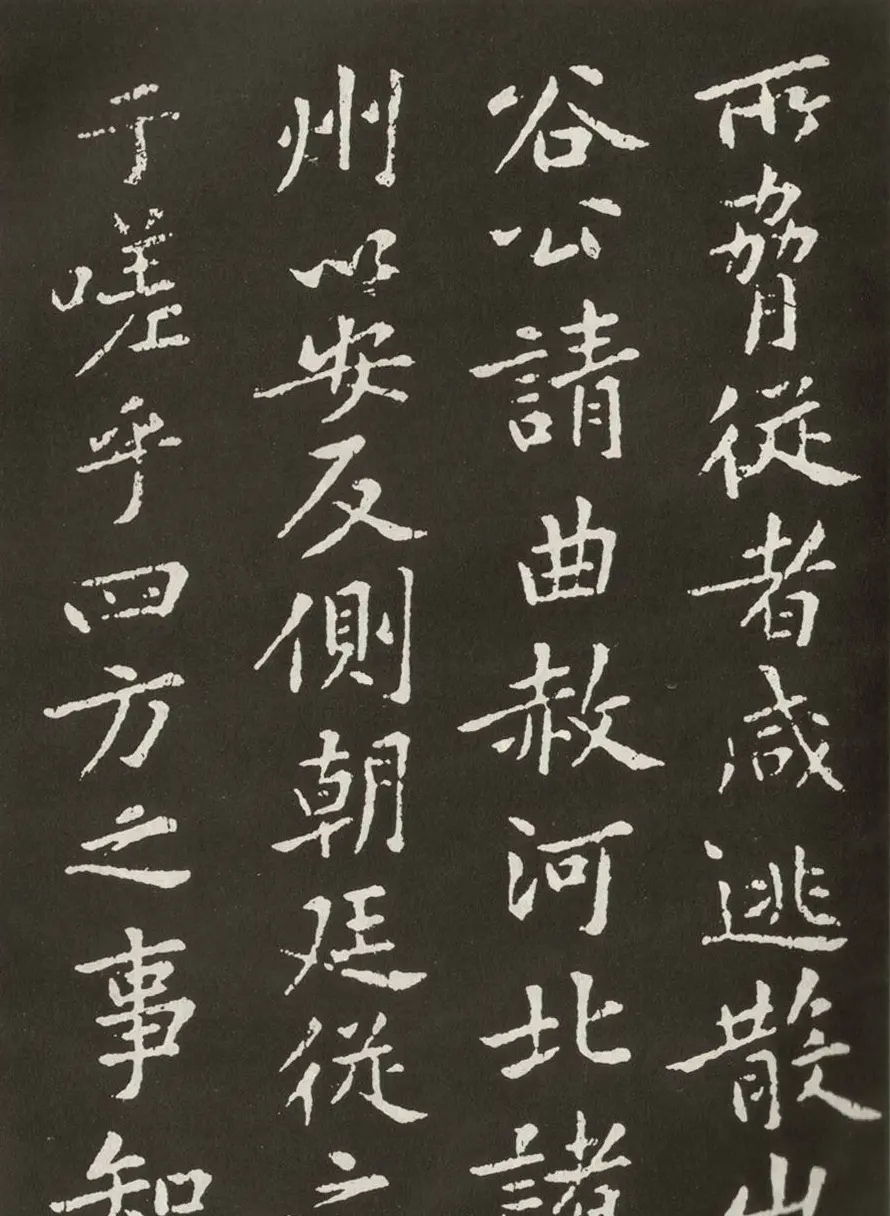 所脅從者咸逃散山
谷公請曲赦河北諸
州以安反側朝廷從之
于嗟乎四方之事知